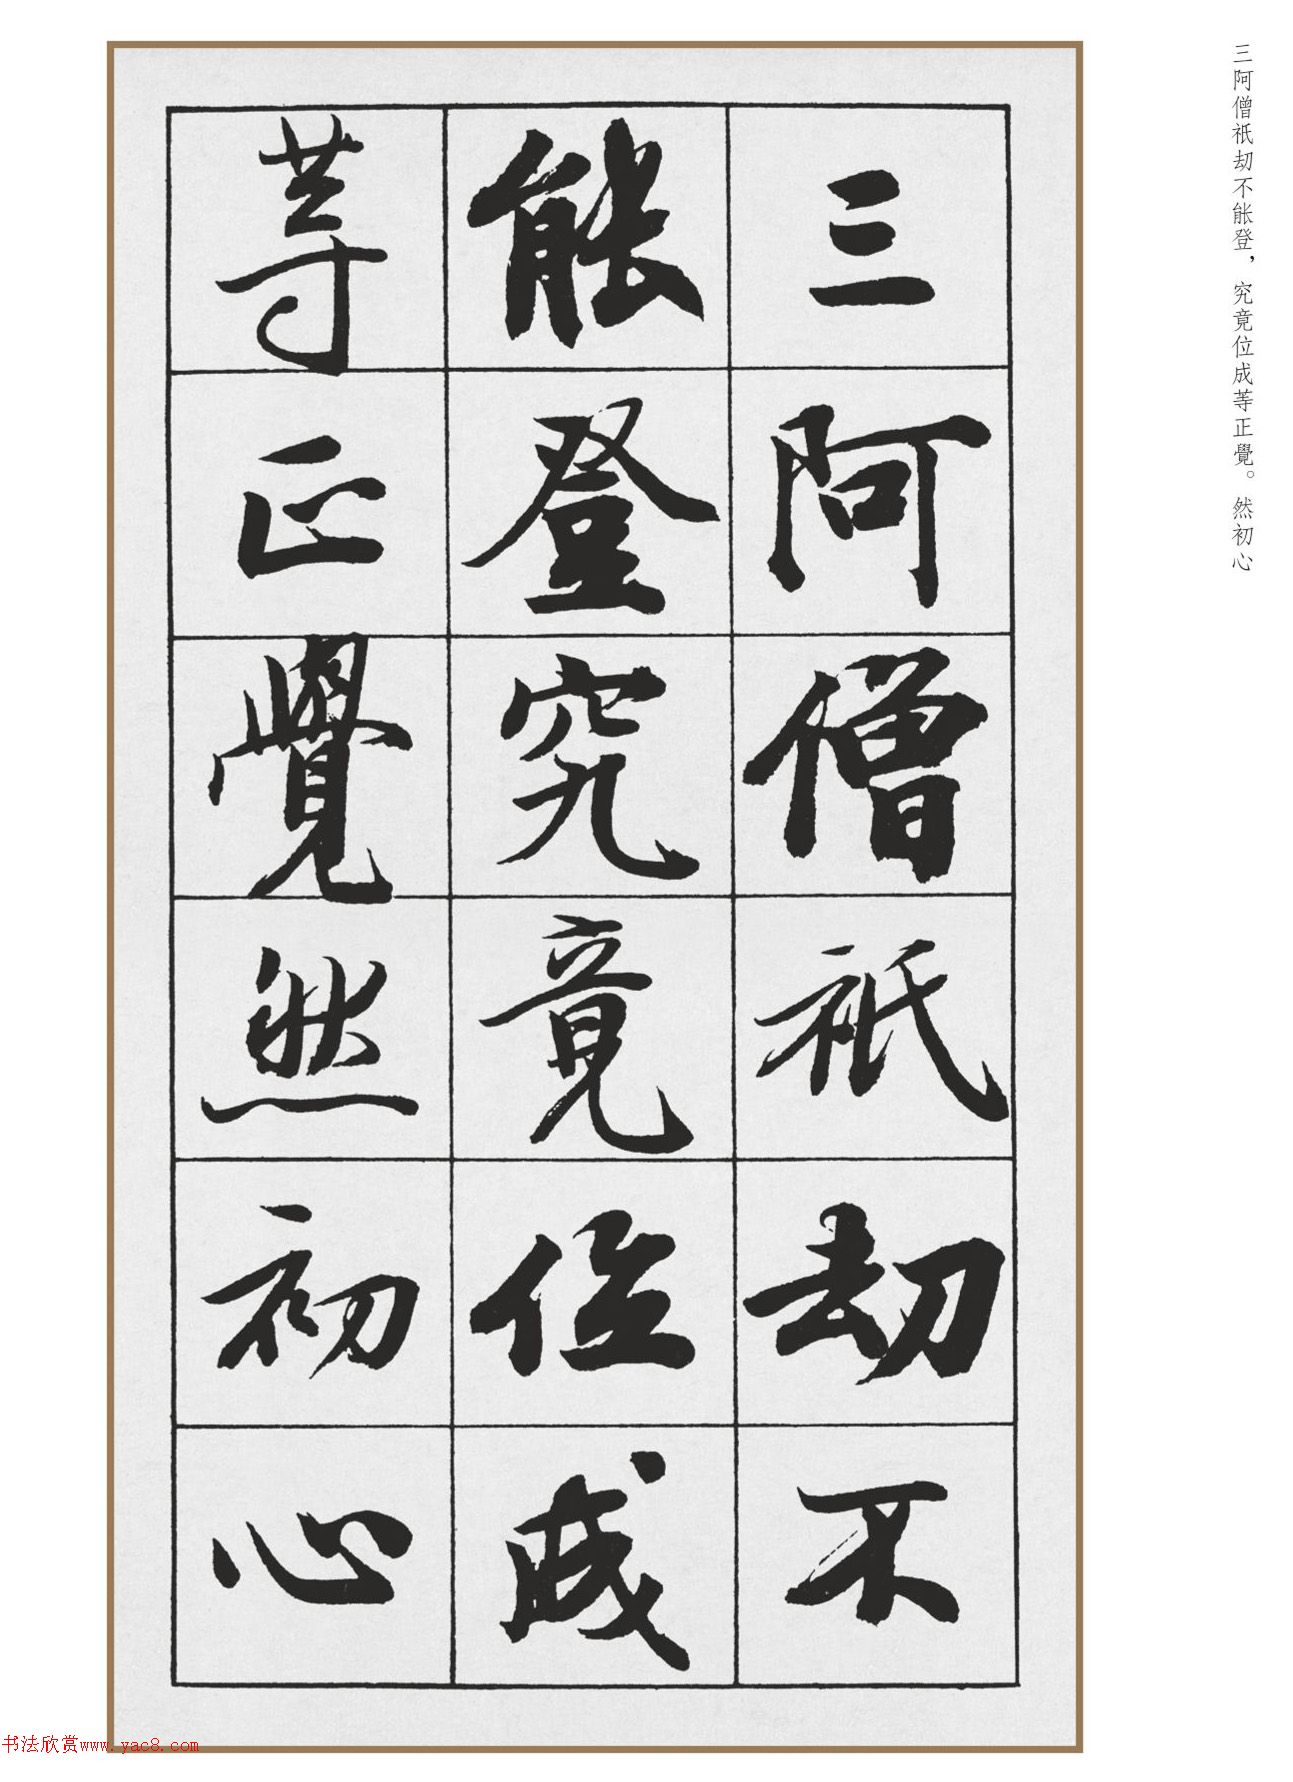 三阿僧祇劫不能登，究竟位成等正覺。然初心
三阿僧祇劫不
能登究竟位成
等正覺然初心
书法欣赏www.yac8.com